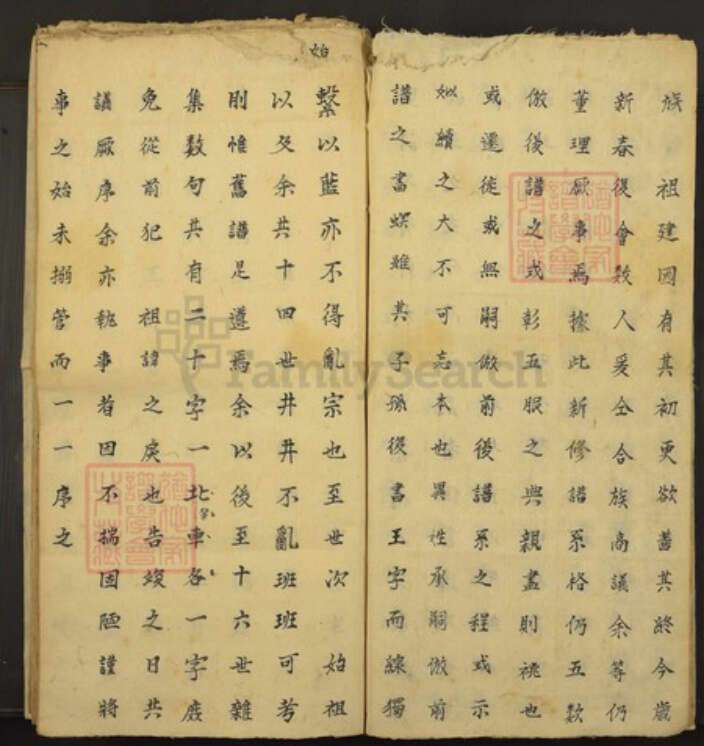 族祖建國有其初更欲善其終今歲
新春復會数人爰仝合族商議余等仍
董理厥事焉據此新修譜系格仍五数
倣後譜之或彰五服之與親盡則祧也
或遷徙或無嗣倣前後譜系之程或示
如續之大不可忘本也異性承嗣倣前
譜之書螟雖其子孫後書王字而線獨
始
繫以藍亦不得亂宗也至世次始祖
以及余共十四世井井不亂班班可考
則惟舊譜是遵焉余以後至十六世雜
集数句共有二十字一北車各一字庶
免從前犯祖諱之戾也告竣之日共
議厥序余亦執事者因不揣固陋謹將
事之始末搦管而一一序之
FamilySearch